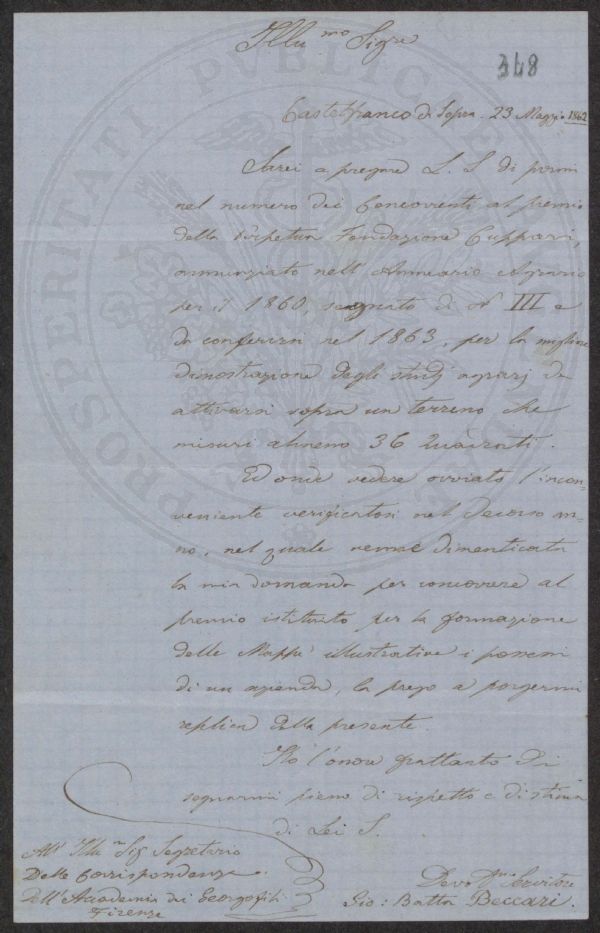 Illu.mo Sigre
348
Castelfranco di Sopra. 23 Maggio 1862
Sarei a pregare L. S. di pormi
nel numero dei Concorrenti al premio
della Perpetua Fondazione Cuppari,
annunziato nell'Annuario Agrario
per il 1860, segnato di N III e
da conferirsi nel 1863, per la migliore
dimostrazione degli studj agrarj da
attivarsi sopra un terreno che
misuri almeno 36 Quadrati.
Ed onde vedere ovviato l'incon-
veniente verificatosi nel decorso an-
no, nel quale venne dimenticata
la mia domanda per concorrere al
premio istituito per la formazione
delle Mappe illustrative i possessi
di un azienda, la prego a porgermi
replica della presente.
Ho l'onore frattanto di
segnarmi pieno di rispetto e di stima
di Lei S.
All' Illu.mo Sig Segretario
Delle Corrispondenze
Dell'Accademia dei Georgofili
Firenze
Devo.mo Servitore
Gio: Batta Beccari.
PROSPERITATI PUBLICAE